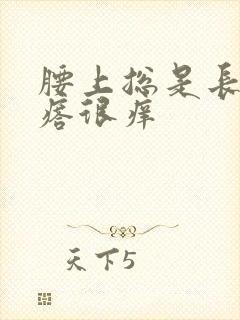 腰上总是長
痞很痒
天下5